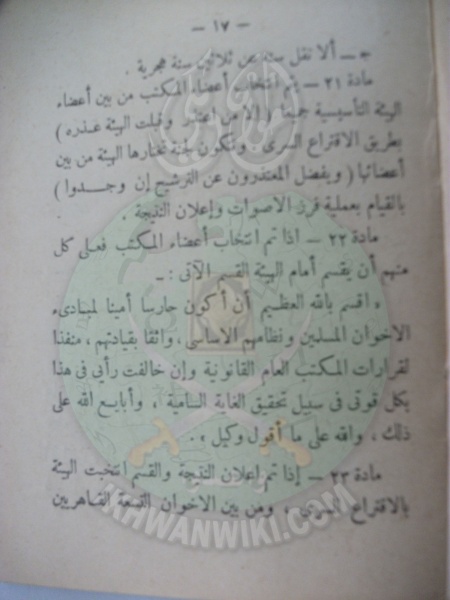 — ١٧ —
ج — ألا تقل سنه عن ثلاثين سنة هجرية .
مادة ٢١ — يتم انتخاب أعضاء المكتب من بين أعضاء
الهيئة التأسيسية جميعا ( إلا من اعتذر وقبلت الهيئة عذره )
بطريق الاقتراع السرى ، وتكون لجنة تختارها الهيئة من بين
أعضائها ( ويفضل المعتذرون عن الترشيح إن وجدوا )
بالقيام بعملية فرز الاصوات وإعلان النتيجة .
مادة ٢٢ — اذا تم انتخاب أعضاء المكتب فعلى كل
منهم أن يقسم أمام الهيئة القسم الآتى : —
« اقسم بالله العظيم أن أكون حارسا أمينا لمبادىء
الاخوان المسلمين ونظامهم الاساسى ، واثقا بقيادتهم ، منفذا
لقرارات المكتب العام القانونية وإن خالفت رأيى فى هذا
بكل قوتى فى سبيل تحقيق الغاية السامية ، وأبايع الله على
ذلك ، والله على ما أقول وكيل » .
مادة ٢٣ — إذا تم إعلان النتيجة والقسم انتخبت الهيئة
بالاقتراع السرى ، ومن بين الاخوان التسعة القاهريين
IKHWANWIKI.COM